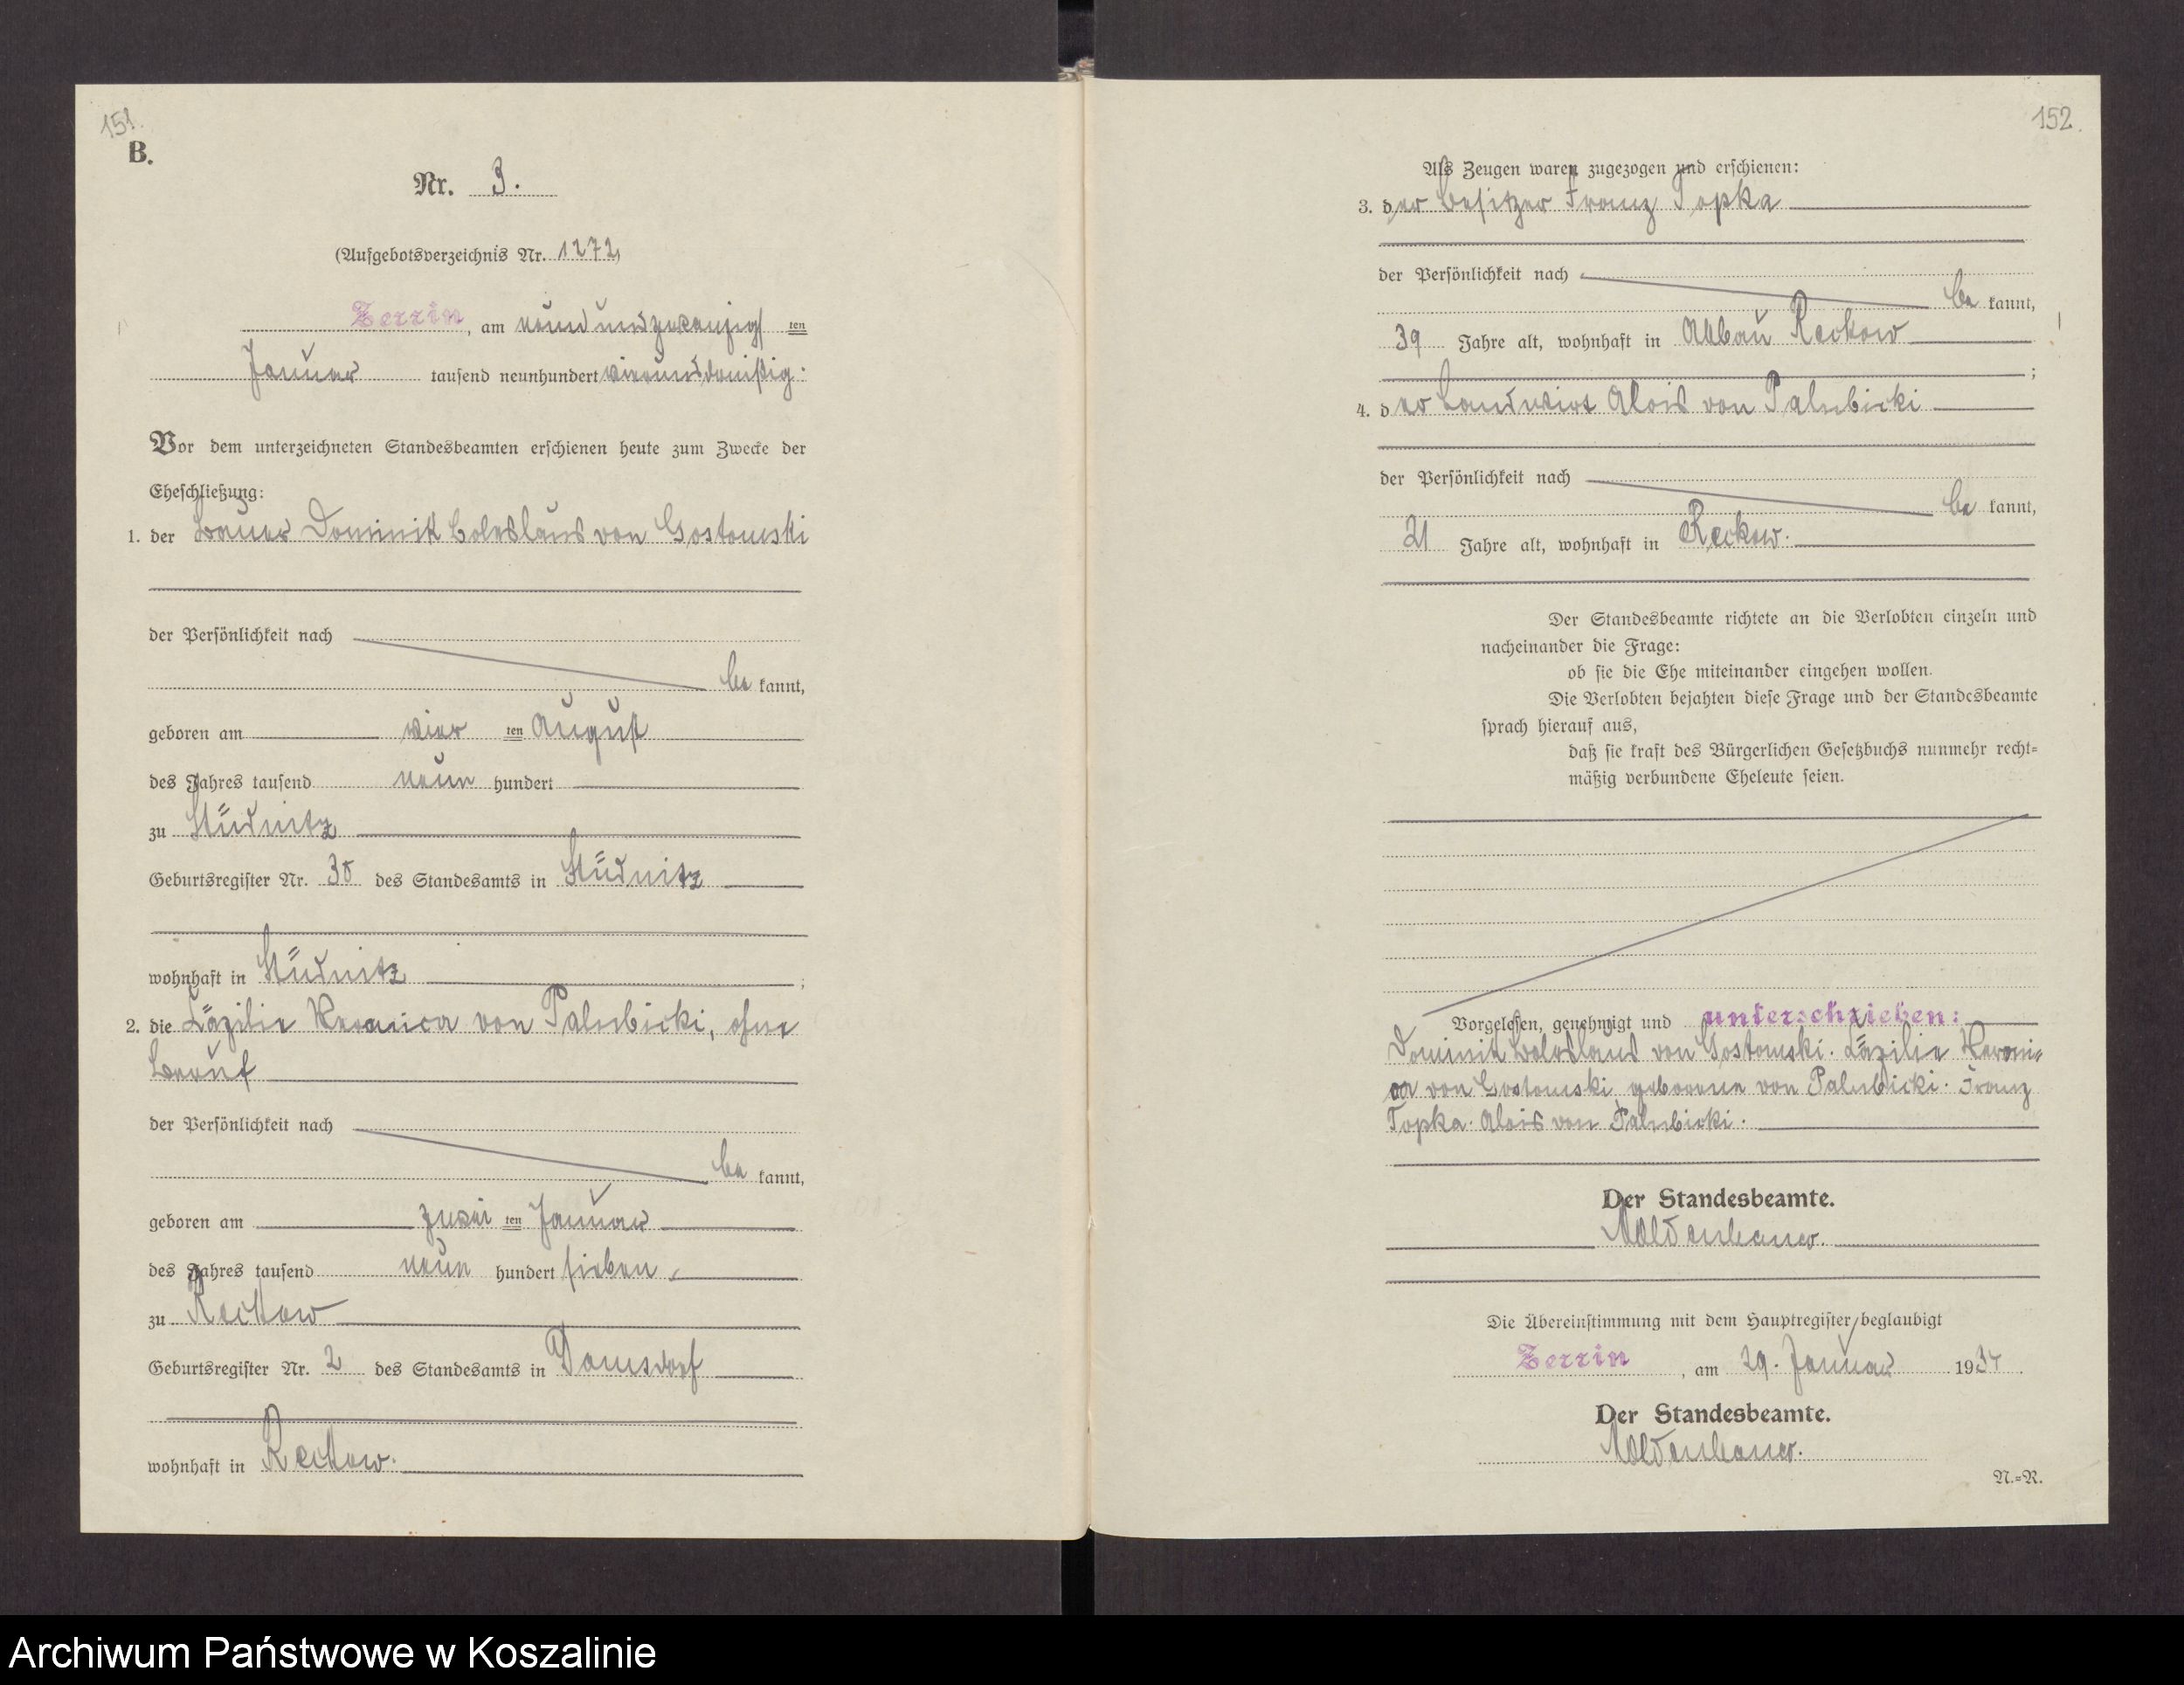 151.
B.
Nr. 3.
(Aufgebotsverzeichnis Nr. 1272)
Zerrin, am neunundzwanzigsten
Januar tausend neunhundert vierunddreißig.
Vor dem unterzeichneten Standesbeamten erschienen heute zum Zwecke der
Eheschließung:
1. der Bauer Dominik Boleslaus von Gostomski
der Persönlichkeit nach
be kannt,
geboren am vier ten August
des Jahres tausend neun hundert
zu Stüdnitz
Geburtsregister Nr. 38 des Standesamts in Stüdnitz
wohnhaft in Stüdnitz;
2. die Cäzilie Veronica von Palubicki, ohne
Beruf
der Persönlichkeit nach
be kannt,
geboren am zwei ten Januar
des Jahres tausend neun hundert sieben
zu Reckow
Geburtsregister Nr. 2 des Standesamts in Damsdorf
wohnhaft in Reckow.
152.
Als Zeugen waren zugezogen und erschienen:
3. der Besitzer Franz Topka
der Persönlichkeit nach
be kannt,
39 Jahre alt, wohnhaft in Abbau Reckow
;
4. der Landwirt Alois von Palubicki
der Persönlichkeit nach
be kannt,
21 Jahre alt, wohnhaft in Reckow.
Der Standesbeamte richtete an die Verlobten einzeln und
nacheinander die Frage:
ob sie die Ehe miteinander eingehen wollen.
Die Verlobten bejahten diese Frage und der Standesbeamte
sprach hierauf aus,
daß sie kraft des Bürgerlichen Gesetzbuchs nunmehr recht=
mäßig verbundene Eheleute seien.
Vorgelesen, genehmigt und unterschrieben:
Dominik Boleslaus von Gostomski. Cäzilie Veroni=
ca von Gostomski geborene von Palubicki. Franz
Topka. Alois von Palubicki.
Der Standesbeamte.
Moldenhauer.
Die Übereinstimmung mit dem Hauptregister beglaubigt
Zerrin, am 29. Januar 1934.
Der Standesbeamte.
Moldenhauer.
N.=R.
Archiwum Państwowe w Koszalinie